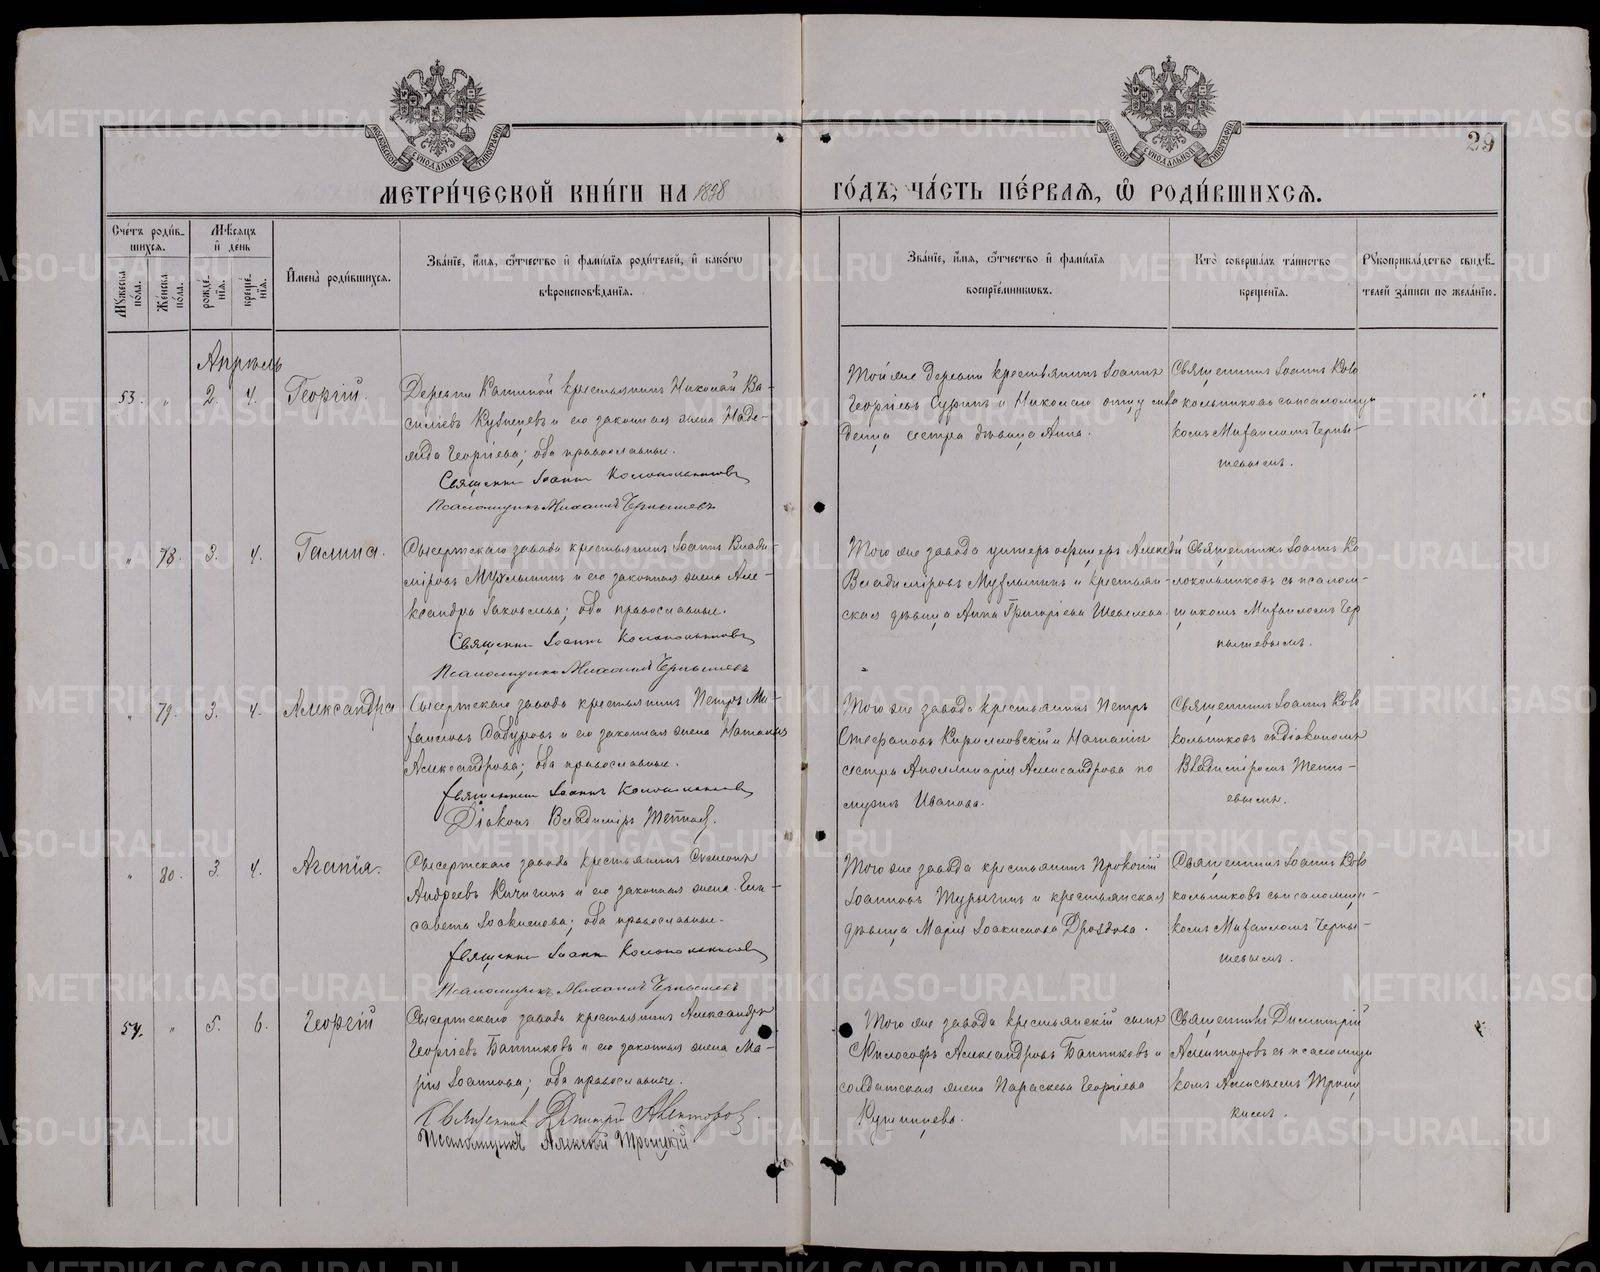 29
МОСКОВСКОЙ СѴНОДАЛЬНОЙ ТИПОГРАФІИ
МОСКОВСКОЙ СѴНОДАЛЬНОЙ ТИПОГРАФІИ
МЕТРИ́ЧЕСКОЙ КНИ́ГИ НА 1898 ГО́ДЪ, ЧА́СТЬ ПЕ́РВАѦ, Ѽ РОДИ́ВШИХСѦ.
Сче́тъ роди́вшихсѧ.
Мѣ́сѧцъ и҆ де́нь
Мꙋ́жеска по́ла.
Же́нска по́ла.
рожде́нїѧ.
креще́нїѧ.
И҆мена̀ роди́вшихсѧ.
Зва́нїе, и҆́мѧ, ѻ҆́тчество и҆ фами́лїѧ роди́телей, и҆ како́гѡ
вѣроисповѣ́данїѧ.
Зва́нїе, и҆́мѧ, ѻ҆́тчество и҆ фами́лїѧ
воспрїе́мникѡвъ.
Кто̀ соверша́лъ та́инство
креще́нїѧ.
Рꙋкоприкла́дство свидѣ́-
телей за́писи по жела́нїю.
Апрѣль
53. „ 2. 4. Георгій.
Деревни Кашиной крестьянинъ Николай Ва-
силіевъ Кузнецовъ и его законная жена Наде-
жда Георгіева; оба православные.
Священникъ Іоаннъ Колокольниковъ
Псаломщикъ Михаилъ Чернышевъ
Той же деревни крестьянинъ Іоаннъ
Георгіевъ Суринъ и Николаю отцу
дѣвица Анна.
Священникъ Іоаннъ Коло
кольниковъ съ псаломщи
комъ Михаиломъ Черны-
шевымъ.
„ 78. 3. 4. Галина.
Сысертскаго завода крестьянинъ Іоаннъ Влади-
міровъ Мухлынинъ и его законная жена Але-
ксандра Іаковлева; оба православные.
Священникъ Іоаннъ Колокольниковъ
Псаломщикъ Михаилъ Чернышевъ
Того же завода унтеръ офицеръ Алексѣй
Владиміровъ Мухлынинъ и крестьян-
ская дѣвица Анна Григоріева Шевелева.
Священникъ Іоаннъ Ко
локольниковъ съ псалом-
щикомъ Михаиломъ Чер
нышевымъ.
„ 79. 3. 4. Александра
Сысертскаго завода крестьянинъ Петръ Ми-
хаиловъ Бабуровъ и его законная жена Наталія
Александрова; оба православные.
Священникъ Іоаннъ Колокольниковъ
Діаконъ Владиміръ Тетюевъ.
Того же завода крестьянинъ Петръ
Стефановъ Кирилловскій и Наталіи
сестра Аполлинарія Александрова по
мужѣ Иванова.
Священникъ Іоаннъ Коло
кольниковъ съ діакономъ
Владиміромъ Тетю-
евымъ.
„ 80. 3. 4. Агапія.
Сысертскаго завода крестьянинъ Симеонъ
Андреевъ Кичигинъ и его законная жена Ели-
савета Іоакимова; оба православные.
Священникъ Іоаннъ Колокольниковъ
Псаломщикъ Михаилъ Чернышевъ
Того же завода крестьянинъ Прокопій
Іоанновъ Турыгинъ и крестьянская
дѣвица Марія Іоакимова Дроздова.
Священникъ Іоаннъ Коло
кольниковъ съ псаломщи-
комъ Михаиломъ Черны-
шевымъ.
54. „ 5. 6. Георгій
Сысертскаго завода крестьянинъ Александръ
Георгіевъ Банниковъ и его законная жена Ма-
рія Іоаннова; оба православные.
Священникъ Димитрій
Псаломщикъ Алексѣй Троицкій
Того же завода крестьянскій сынъ
Философъ Александровъ Банниковъ и
солдатская жена Параскева Георгіева
Священникъ Димитрій
съ псаломщи
комъ Алексѣемъ Троиц
кимъ.
METRIKI.GASO-URAL.RU